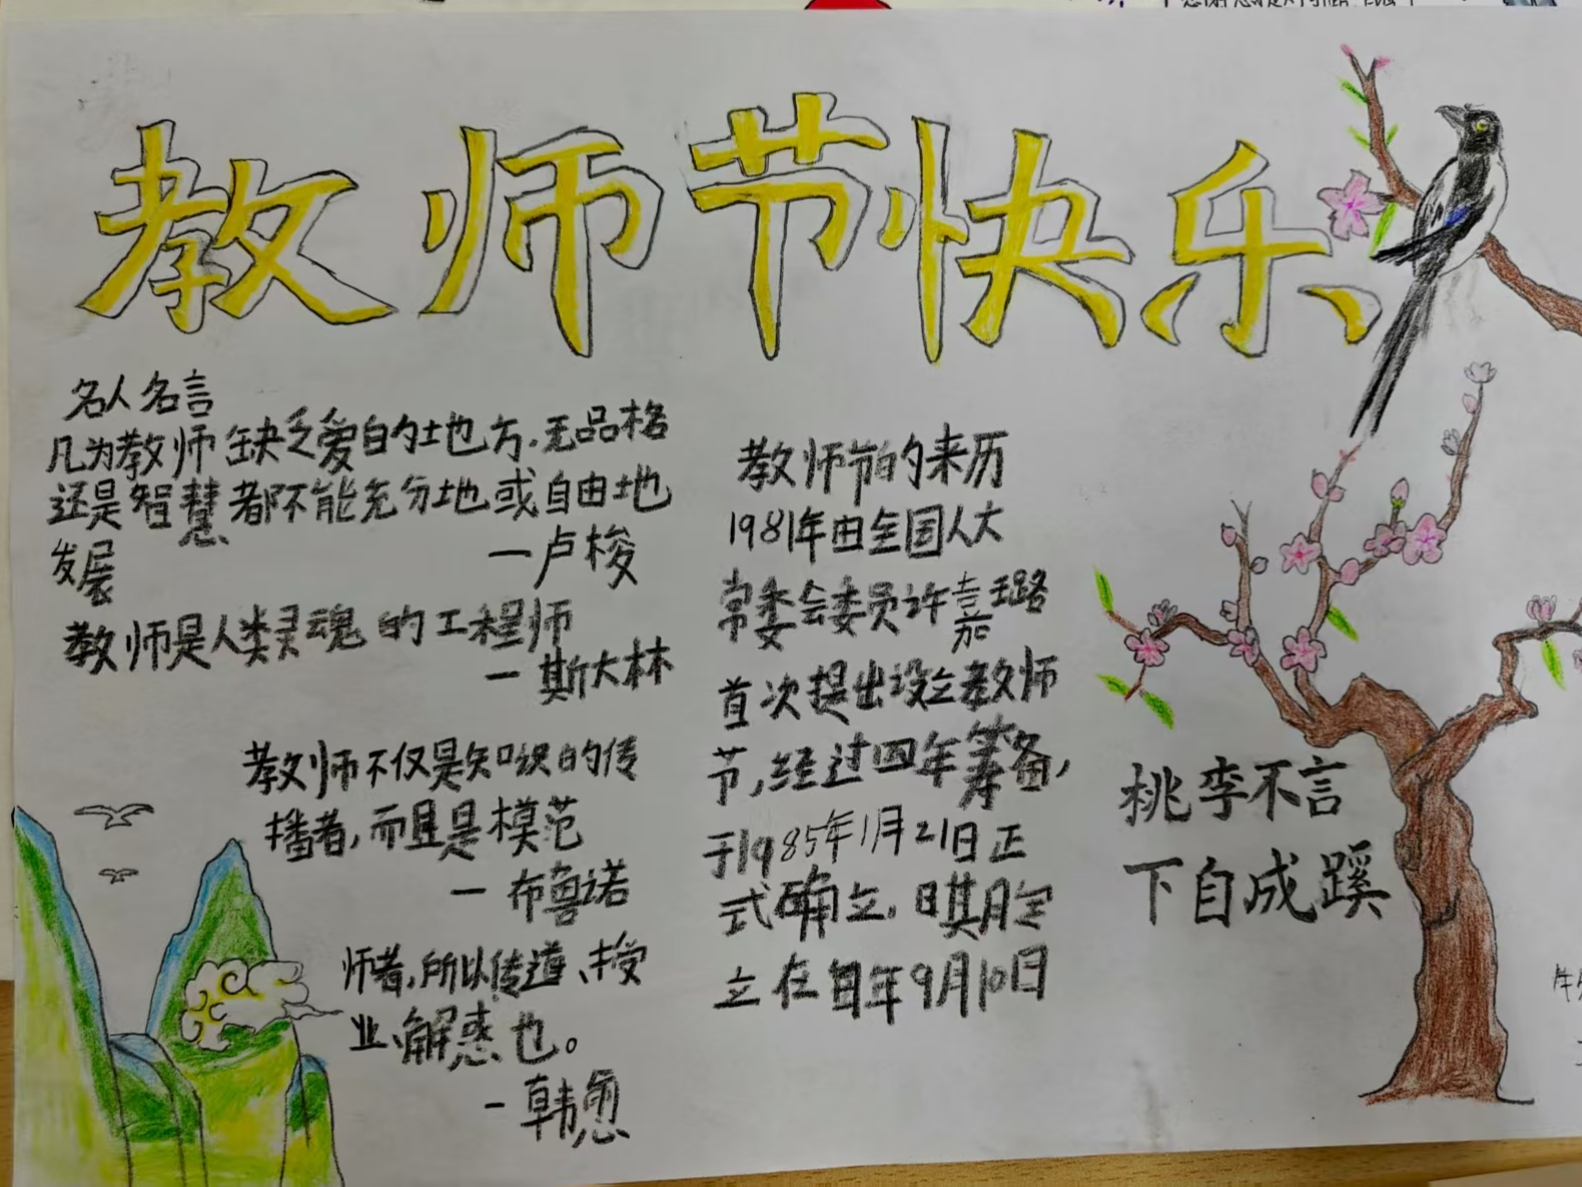 教师节快乐
名人名言
凡为教师缺乏爱的地方,无品格
还是智慧都不能充分地或自由地
发展
—卢梭
教师是人类灵魂的工程师
—斯大林
教师不仅是知识的传
播者,而且是模范
—布鲁诺
师者,所以传道、授
业、解惑也。
-韩愈
教师节的来历
1981年由全国人大
常委会委员许嘉璐
首次提出设立教师
节,经过四年筹备,
于1985年1月21日正
式确立,日期定
立在每年9月10日
桃李不言
下自成蹊